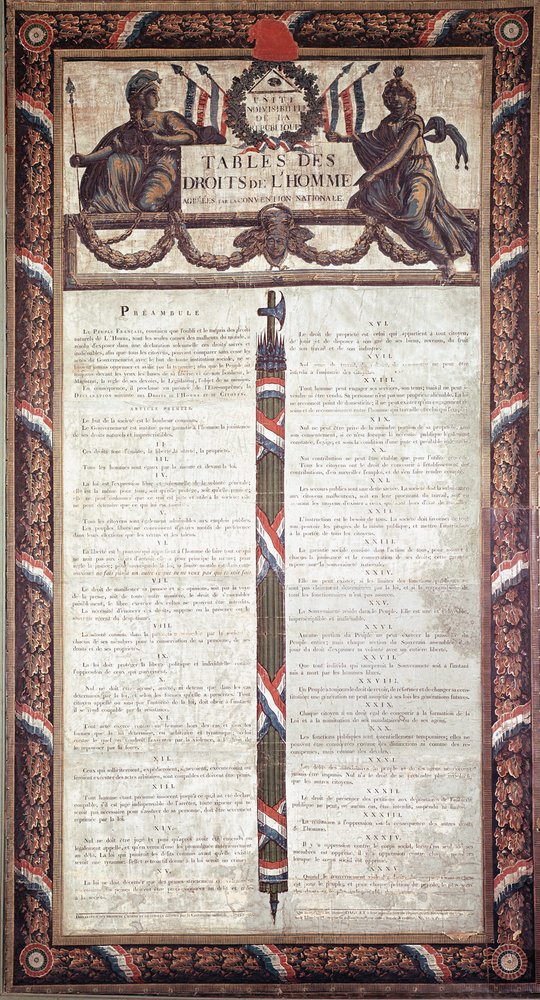 UNITÉ
INDIVISIBILITÉ
DE LA
RÉPUBLIQUE
TABLES DES
DROITS DE L'HOMME
AGRÉÉES PAR LA CONVENTION NATIONALE.
PRÉAMBULE
LE PEUPLE FRANÇAIS, convaincu que l'oubli et le mépris des droits
naturels de L'Homme, sont les seules causes des malheurs du monde, a
résolu d'exposer dans une déclaration solennelle ces droits sacrés et
inaliénables, afin que tous les citoyens, pouvant comparer sans cesse les
actes du Gouvernement avec le but de toute institution sociale, ne se
laissent jamais opprimer et avilir par la tyrannie; afin que le Peuple ait
toujours devant les yeux les bases de sa liberté et de son bonheur, le
Magistrat, la règle de ses devoirs, le Législateur, l'objet de sa mission.
En conséquence, il proclame en présence de l'Être suprême, la
DÉCLARATION suivante des DROITS DE L'HOMME ET DU CITOYEN.
ARTICLE PREMIER.
Le but de la société est le bonheur commun.
Le Gouvernement est institué pour garantir à l'homme la jouissance
de ses droits naturels et imprescriptibles.
II
Ces droits sont l'égalité, la liberté, la sûreté, la propriété.
III.
Tous les hommes sont égaux par la nature et devant la loi.
IV.
La loi est l'expression libre et solennelle de la volonté générale;
elle est la même pour tous, soit qu'elle protège, soit qu'elle punisse;
elle ne peut ordonner que ce qui est juste et utile à la société; elle
ne peut défendre que ce qui lui est nuisible.
V.
Tous les citoyens sont également admissibles aux emplois publics.
Les peuples libres ne connaissent d'autres motifs de préférence
dans leurs élections que les vertus et les talens.
VI.
La liberté est le pouvoir qui appartient à l'homme de faire tout ce qui
VII.
Le droit de manifester sa pensée et ses opinions, soit par la voie
de la presse, soit de toute autre manière, le droit de s'assembler
paisiblement, le libre exercice des cultes ne peuvent être interdits.
La nécessité d'énoncer ces droits, suppose ou la présence ou le
souvenir récent du despotisme.
VIII.
La sûreté consiste dans la protection accordée par la société à
chacun de ses membres pour la conservation de sa personne, de ses
droits et de ses propriétés.
IX.
La loi doit protéger la liberté publique et individuelle contre
l'oppression de ceux qui gouvernent.
Nul ne doit être accusé, arrêté ni détenu que dans les cas
déterminés par la loi, et selon les formes qu'elle a prescrites. Tout
citoyen appellé ou saisi par l'autorité de la loi, doit obéir à l'instant;
il se rend coupable par la résistance.
XI.
Tout acte exercé contre un homme hors des cas et sans les
formes que la loi détermine, est arbitraire et tyrannique; celui
contre lequel on voudrait l'exécuter par la violence, a le droit de
le repousser par la force.
XII.
Ceux qui solliciteraient, expédieraient, signeraient, exécuteraient ou
feraient exécuter des actes arbitraires, sont coupables et doivent être punis.
XIII.
Tout homme étant présumé innocent jusqu'à ce qu'il ait été déclaré
coupable, s'il est jugé indispensable de l'arrêter, toute rigueur qui ne
serait pas nécessaire pour s'assurer de sa personne, doit être sévèrement
réprimée par la loi.
XIV.
Nul ne doit être jugé et puni qu'après avoir été entendu ou
légalement appellé, et qu'en vertu d'une loi promulguée antérieurement
au délit. La loi qui punirait des délits commis avant qu'elle existât,
serait une tyrannie; l'effet rétroactif donné à la loi serait un crime.
XV.
La loi ne doit décerner que des peines strictement et évidemment
à la société.
XVI.
Le droit de propriété est celui qui appartient à tout citoyen,
de jouir et de disposer à son gré de ses biens, revenus, du fruit
de son travail et de son industrie.
XVII.
Nul genre de travail, de culture, de commerce ne peut être
interdit à l'industrie des citoyens.
XVIII.
Tout homme peut engager ses services, son temps; mais il ne peut se
vendre ni être vendu. Sa personne n'est pas une propriété aliénable. La loi
ne reconnait point de domesticité; il ne peut exister qu'un engagement de
soins et de reconnaissance entre l'homme qui travaille et celui qui l'emploie.
XIX.
Nul ne peut être privé de la moindre portion de sa propriété, sans
son consentement, si ce n'est lorsque la nécessité publique légalement
constatée, l'exige, et sous la condition d'une juste et préalable indemnité.
XX.
Nul contribution ne peut être établie que pour l'utilité générale.
Tous les citoyens ont le droit de concourir à l'établissement des
contributions, d'en surveiller l'emploi, et de s'en faire rendre compte.
XXI.
Les secours publics sont une dette sacrée. La société doit la subsistance
aux citoyens malheureux, soit en leur procurant du travail, soit en
XXII.
L'instruction est le besoin de tous. La société doit favoriser de tout
son pouvoir les progrès de la raison publique, et mettre l'instruction
à la portée de tous les citoyens.
XXIII.
La garantie sociale consiste dans l'action de tous, pour assurer à
chacun la jouissance et la conservation de ses droits; cette garantie
repose sur la souveraineté nationale.
XXIV.
Elle ne peut exister, si les limites des fonctions publiques ne
sont pas clairement déterminées par la loi, et si la responsabilité de
tous les fonctionnaires n'est pas assurée.
XXV.
La Souveraineté réside dans le Peuple. Elle est une et indivisible,
imprescriptible et inaliénable.
XXVI.
Aucune portion du Peuple ne peut exercer la puissance du
Peuple entier; mais chaque section du Souverain assemblée doit
jouir du droit d'exprimer sa volonté avec un entière liberté.
XXVII.
Que tout individu qui usurperait la Souveraineté soit à l'instant
mis à mort par les hommes libres.
XXVIII.
Un Peuple a toujours le droit de revoir, de réformer et de changer sa constitution;
une génération ne peut assujettir à ses lois les générations futures.
XXIX.
Chaque citoyen a un droit égal de concourir à la formation de la
Loi et à la nomination de ses mandataires ou de ses agens.
XXX.
Les fonctions publiques sont essentiellement temporaires; elles ne
peuvent être considérées comme des distinctions ni comme des récompenses,
mais comme des devoirs.
XXXI.
Les délits des mandataires du peuple et de ses agens ne doivent
jamais être impunis. Nul n'a le droit de se prétendre plus inviolable
que les autres citoyens.
XXXII.
Le droit de présenter des pétitions aux dépositaires de l'autorité
publique ne peut, en aucun cas, être interdit, suspendu ni limité.
XXXIII.
La résistance à l'oppression est la conséquence des autres droits
de l'homme.
XXXIV.
Il y a oppression contre le corps social, lorsqu'un seul de ses
membres est opprimé; il y a oppression contre chaque membre
lorsque le corps social est opprimé.
XXXV.
Quand le gouvernement viole les droits du peuple, l'insurrection
est pour le peuple, et pour chaque portion du peuple, le plus sacré